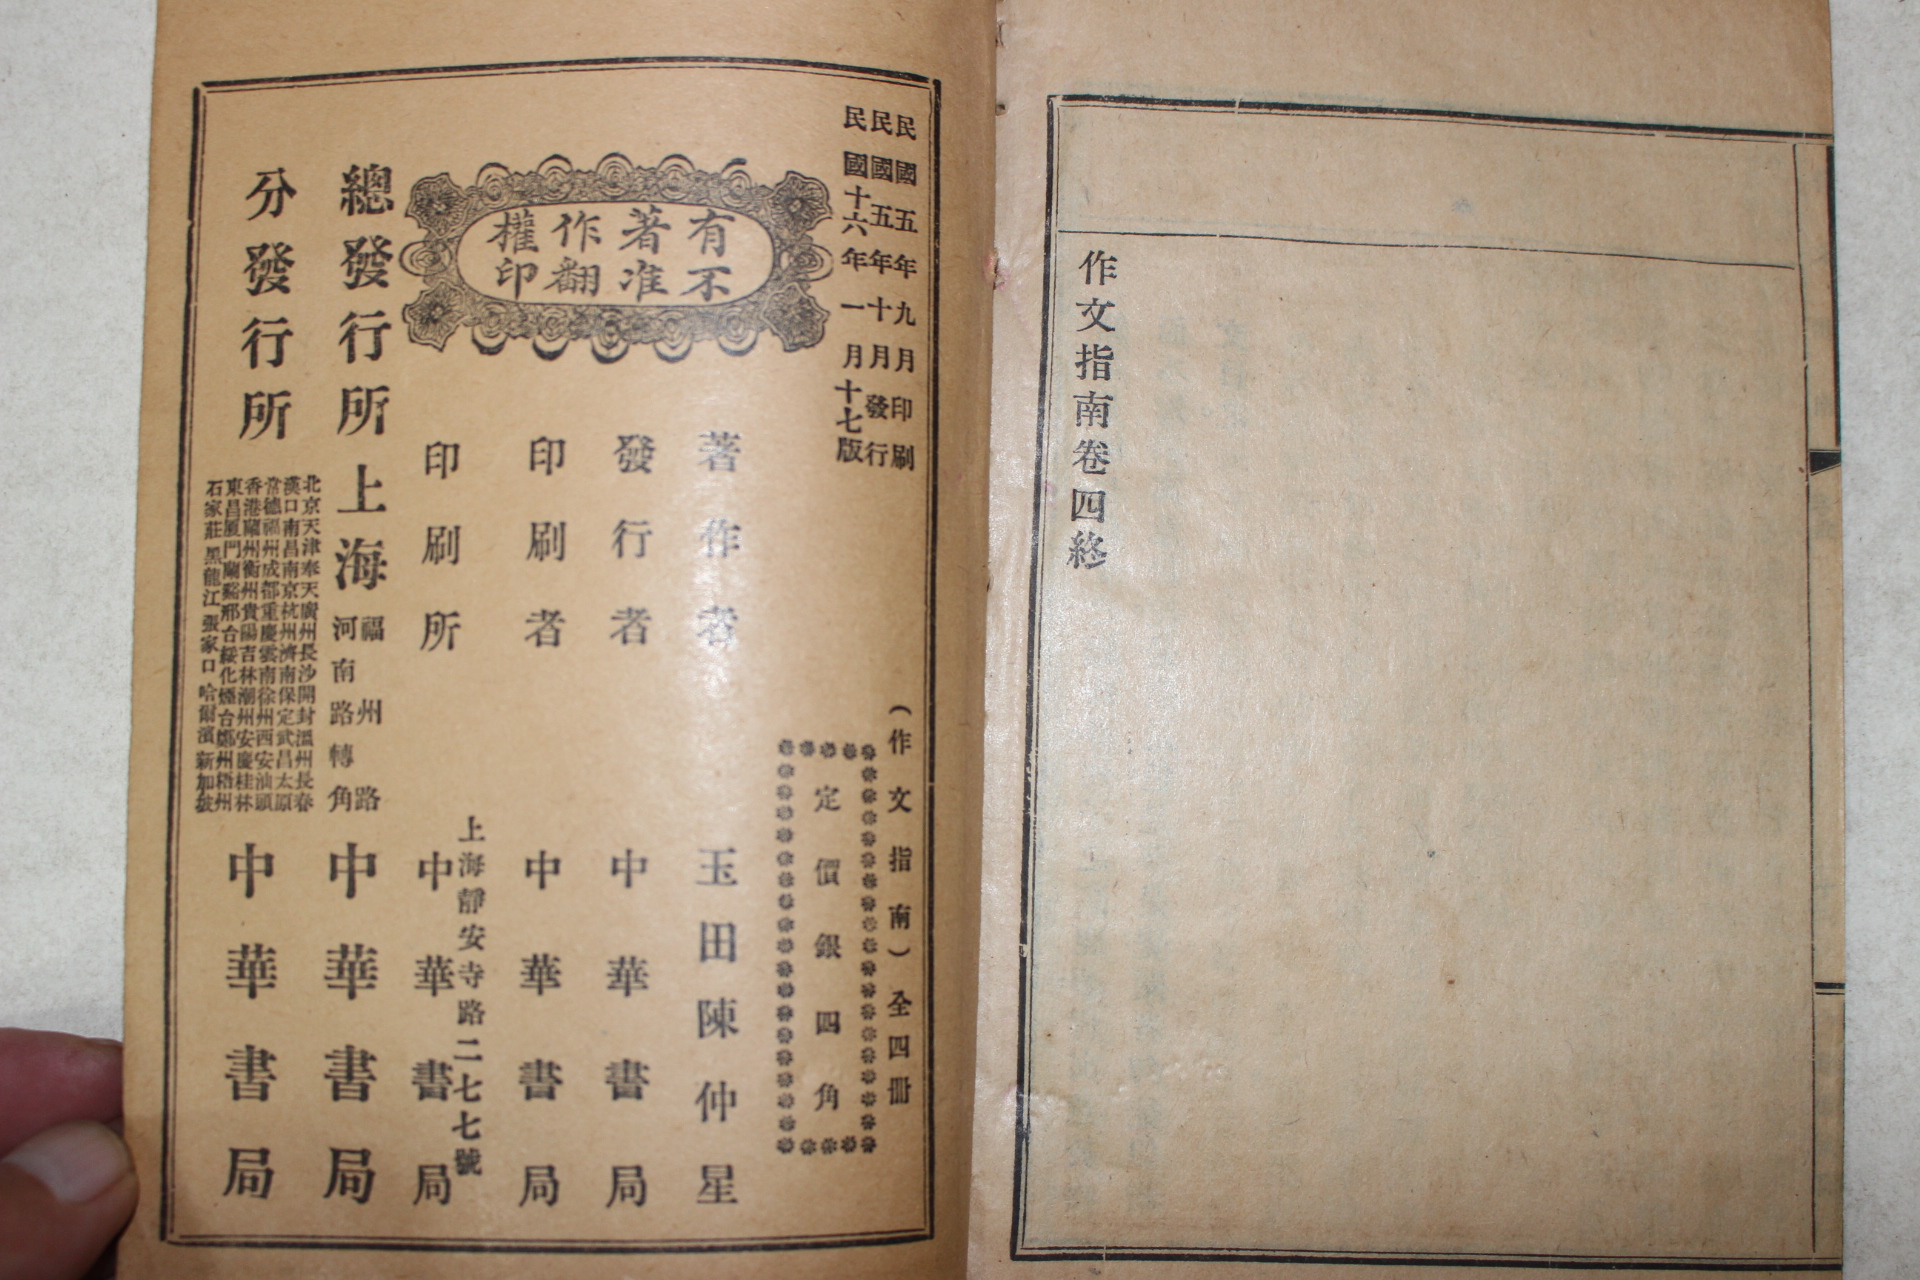 作文指南卷四終
民國五年九月印刷
民國五年十月發行
民國十六年一月十七版
(作文指南)全四册
定價銀四角
有著作權
不准翻印
著作者 玉田陳仲星
發行者 中華書局
印刷者 中華書局
上海靜安寺路二七七號
印刷所 中華書局
總發行所 上海 福州路
河南路轉角 中華書局
分發行所
北京天津奉天廣州長沙開封溫州長春
漢口南昌南京杭州濟南保定武昌太原
常德福州成都重慶雲南徐州西安汕頭
香港蘭州衡州貴陽吉林潮州安慶桂林
東昌厦門蘭谿邢台綏化煙台鄭州梧州
石家莊黑龍江張家口哈爾濱新加坡
中華書局